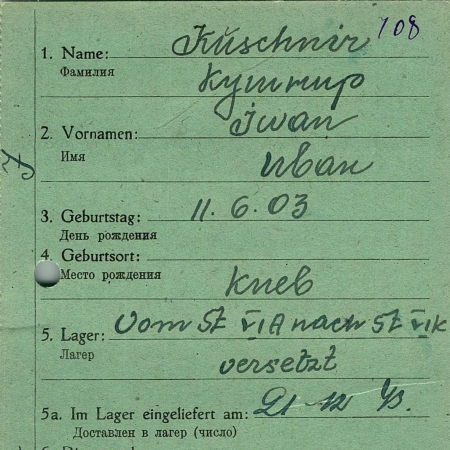 108
1. Name: Kuschnir
Фамилия Кушнир
2. Vornamen: Iwan
Имя Иван
3. Geburtstag: 11.6.03
День рождения
4. Geburtsort:
Место рождения Kneb
5. Lager: vom St VI A nach St VI K
Лагер versetzt
5a. Im Lager eingeliefert am: 21-12 43.
Доставлен в лагер (число)